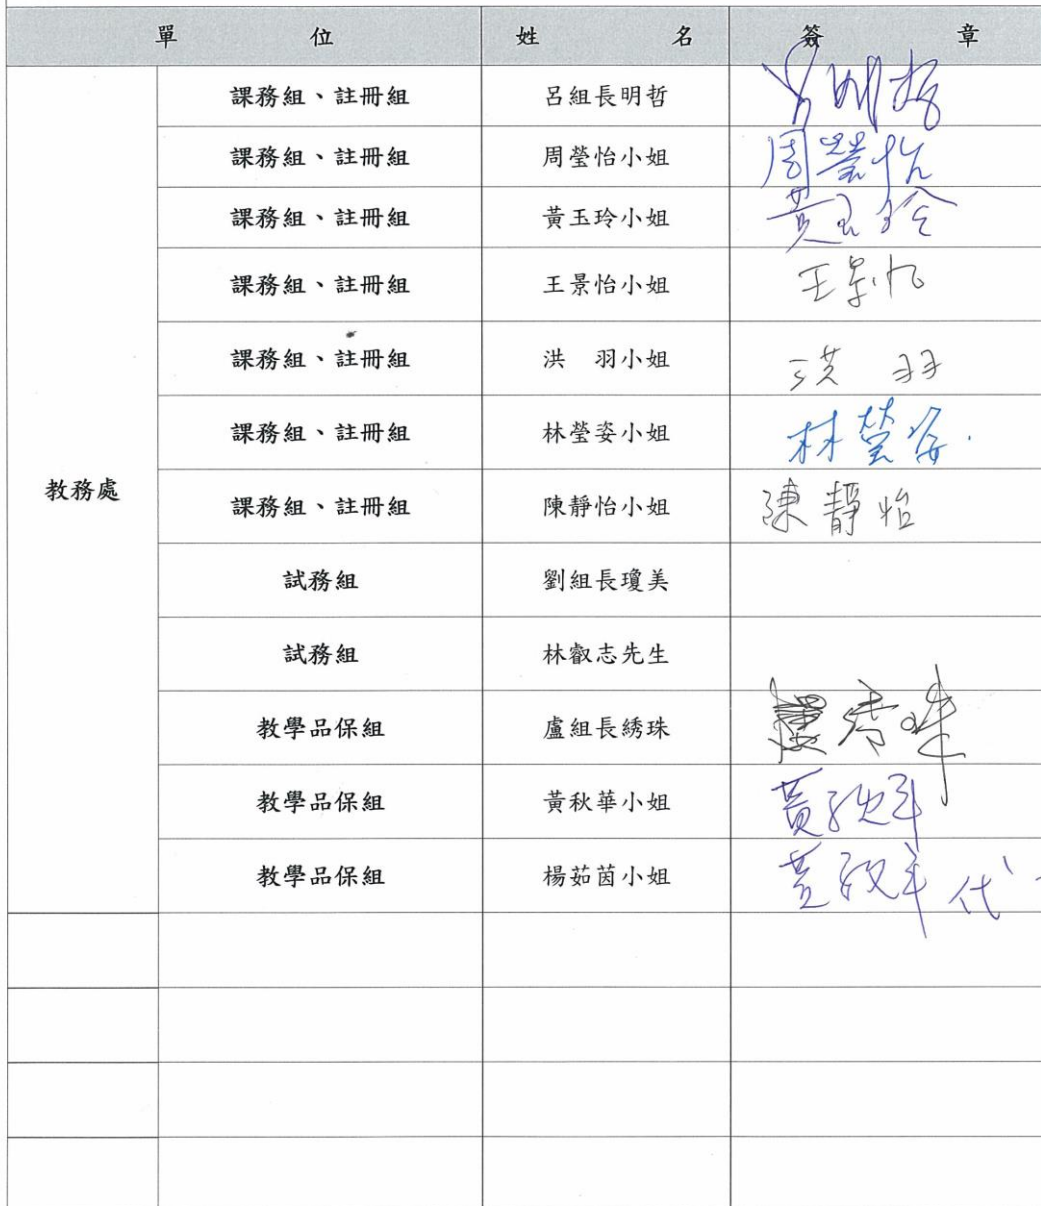 單位 姓名 簽章
教務處
課務組、註冊組 呂組長明哲 呂明哲
課務組、註冊組 周瑩怡小姐 周瑩怡
課務組、註冊組 黃玉玲小姐 黃玉玲
課務組、註冊組 王景怡小姐 王景怡
課務組、註冊組 洪 羽小姐 洪 羽
課務組、註冊組 林瑩姿小姐 林瑩姿
課務組、註冊組 陳靜怡小姐 陳靜怡
試務組 劉組長瓊美
試務組 林叡志先生
教學品保組 盧組長綉珠
教學品保組 黃秋華小姐
教學品保組 楊茹茵小姐 代